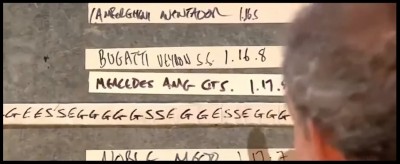 LAMBORGHINI AVENTADOR 1.16.5
BUGATTI VEYRON S.S. 1.16.8
MERCEDES AMG GTS. 1.17.
GEESSEGGGGGSSEGGESSEGGG
NOBLE M600 1.17.7